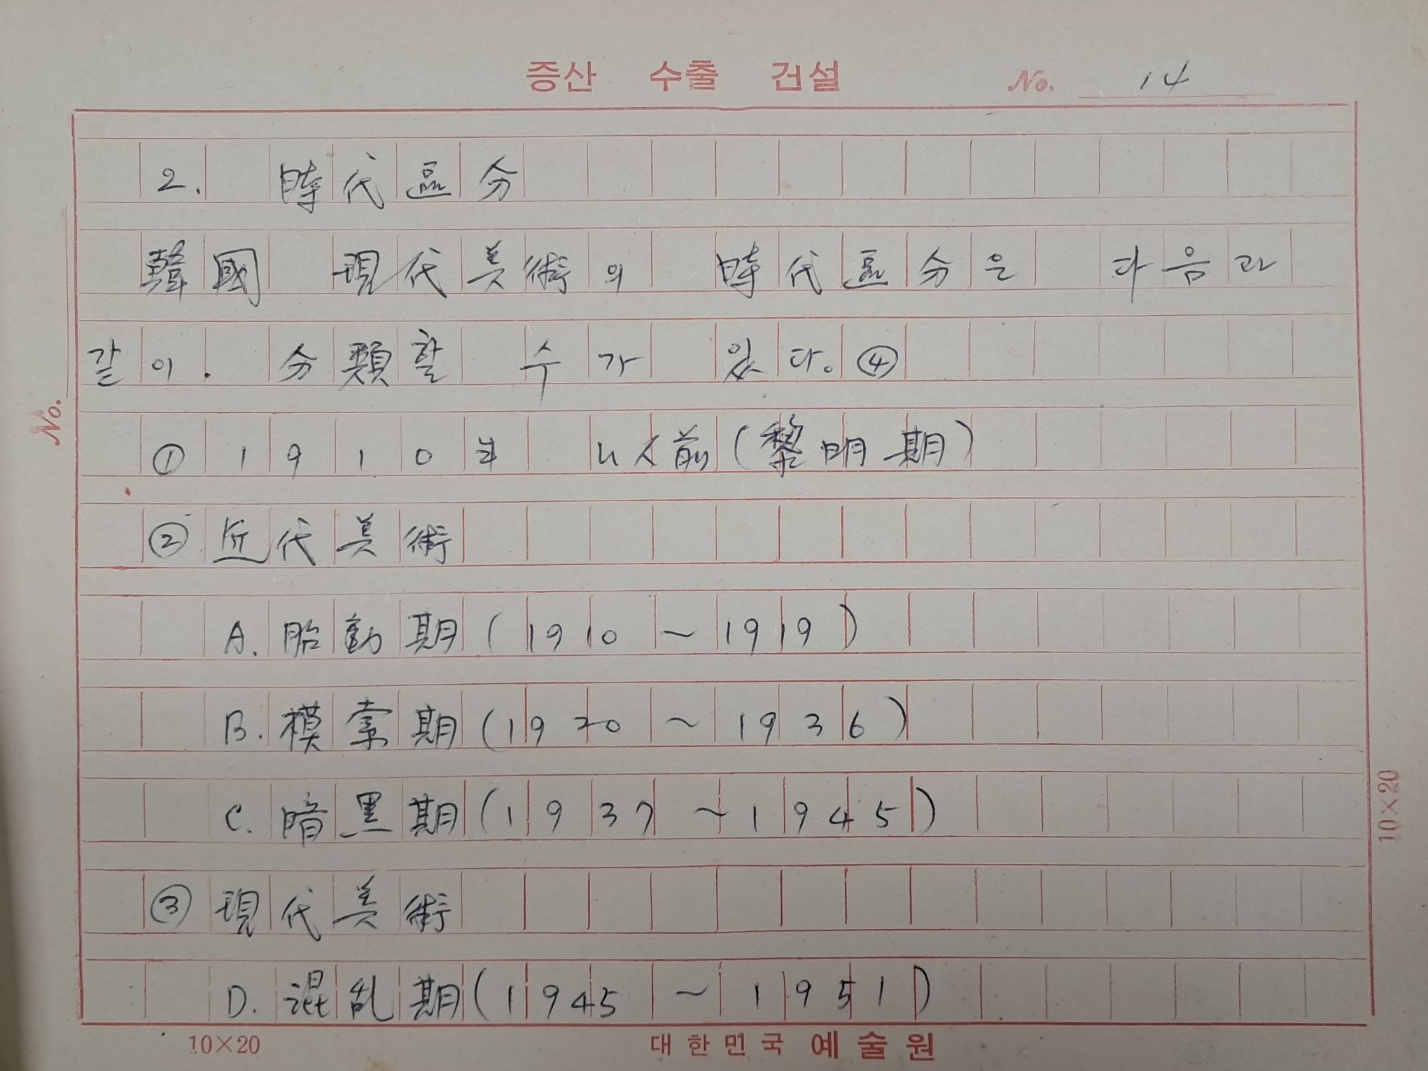 증산 수출 건설 No. 14
2. 時代區分
韓國 現代美術의 時代區分은 다음과
같이. 分類할 수가 있다. ④
① 1910年 以前(黎明期)
② 近代美術
A. 胎動期(1910 ~ 1919)
B. 模索期(1920 ~ 1936)
C. 暗黑期(1937 ~ 1945)
③ 現代美術
D. 混乱期(1945 ~ 1951)
No.
10×20
10×20 대한민국 예술원